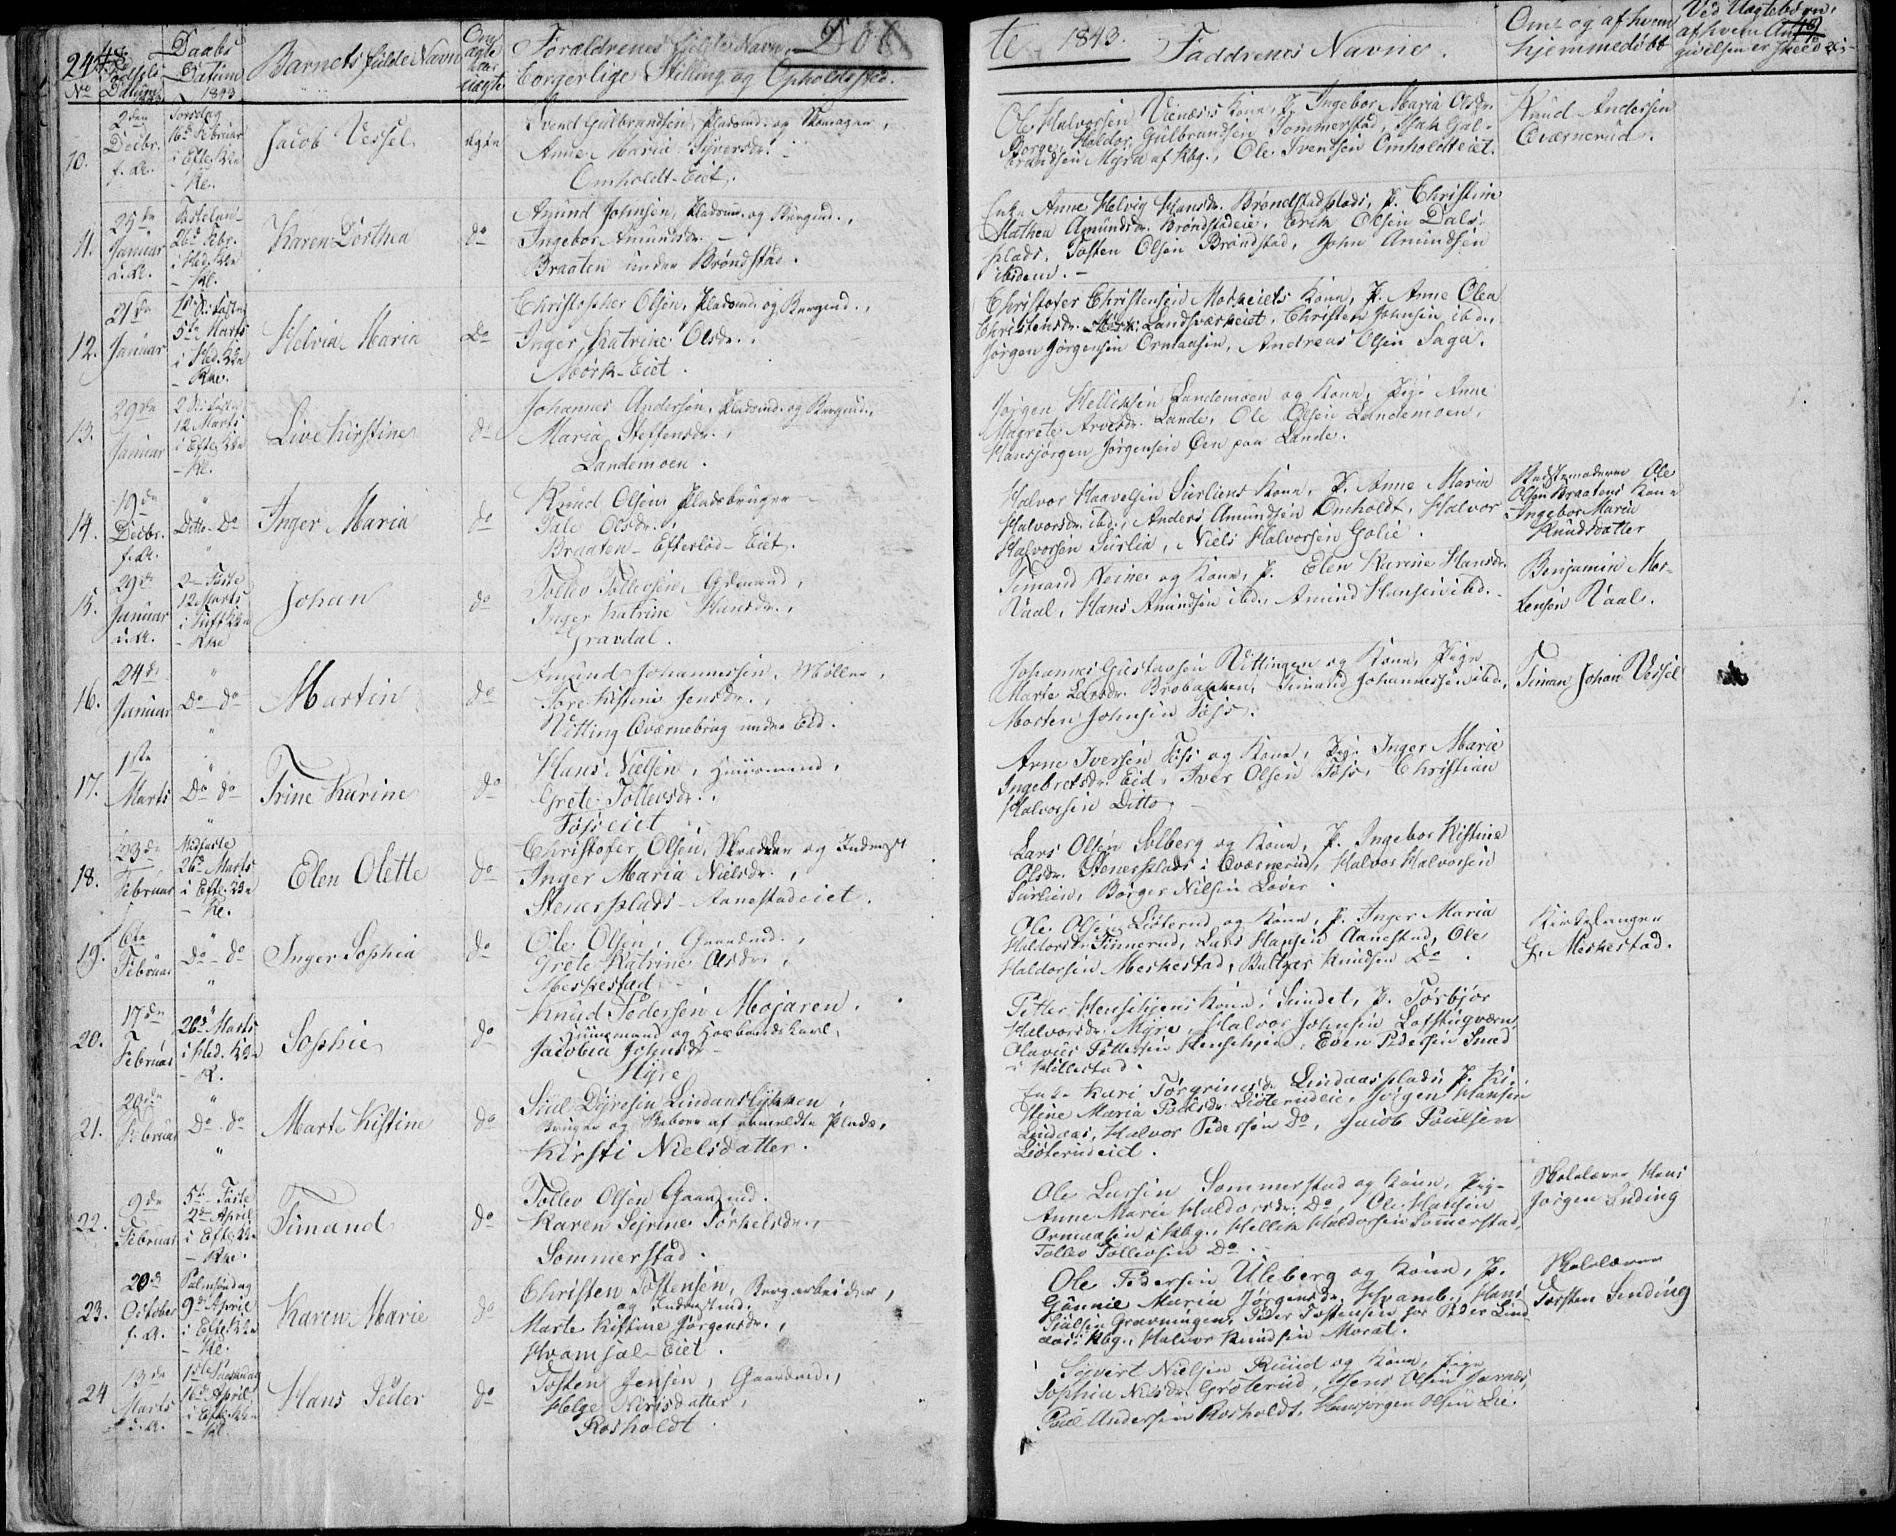 24 48
Fødsels-
No Datum
Daabs
Datum
1843
Barnets fulde Navn
Om
ægte
eller
uægte
Forældrenes fulde Navn,
borgerlige Stilling og Opholdssted.
Døb
te 1843.
Faddrenes Navne.
Om og af hvem
hjemmedøbt
Ved Uægtebørn,
10.
2den
Decbr.
f. A.
Torsdag
16de Februar
Jacob Vessel
ægte
Svend Gulbrandsen, Pladsmd. og Skomager,
Anne Maria Syversdr.
Omholdt-Eiet.
Ole Halvorsen Vienes's Kone, P. Ingebor Maria Olsdr.
Borge, Haldor Gulbrandsen Sommerstad, Isak Gul-
brandsen Myra af Kbg., Ole Svensen Omholdteiet.
Knud Andersen
Qværnerud.
11.
25de
Januar
d. A.
Fastelavn
26de Febr.
i Hed. Kke
Karen Dorthea
do
Amund Johnsen, Pladsmd. og Bergmd.,
Ingebor Amundsdr.
Braaten under Brøndstad.
Enke Anne Helvig Hansdr. Brøndstadplads, P. Christine
Mathea Amundsdr. Brøndstadeie, Erik Olsen Dals-
plads, Tosten Olsen Brøndstad, John Amundsen
ibidem.
12.
21de
Januar
5te Marts
i Hed. Kke
Helvia Maria
Do
Christopher Olsen, Pladsmd. og Bergmd.,
Inger Katrine Olsdr.
Mørk-Eiet.
Christofer Christensen Mørkeiets Kone, P. Anne Olea
Christensdr. Landsværkeiet, Christen Johnsen ibd.,
Jørgen Jørgensen Ormaasen, Andreas Olsen Saga.
13.
29de
Januar
12 Marts
i Efte. Kke
Live Kirstine
do
Johannes Andersen, Pladsmd. og Bergmd.,
Maria Steffensdr.,
Landemoen.
Jørgen Helliksen Landemoen og Kone, Pige Anne
Magrete Arvesdr. Lande, Ole Olsen Landemoen,
Hansjørgen Jørgensen Øen paa Lande.
14.
19de
Decbr.
f. A.
Ditto Do
Inger Maria
do
Knud Olsen Pladsbruger
Pale Olsdr.
Braaten-Eftelød-Eiet.
Halvor Haavelsen Surliens Kone, P. Anne Maria
Halvorsdr. ibd., Anders Amundsen Omholdt, Halvor
Halvorsen Surlia, Niels Halvorsen Golie.
Bedstemoderen Ole
Olsen Braatens Kone
Ingebor Maria
Knudsdatter
15.
29de
Januar
d. A.
12 Marts
Johan
do
Tollev Tollevsen, Gdmand,
Inger Katrine Hansdr.,
Gravdal.
Timand Heine og Kone, P. Elen Karine Hansdr.
Raal, Hans Amundsen ibd., Amund Hansen ibd.
Benjamin Mor-
tensen Raal.
16.
24de
Januar
Do do
Martin
do
Amund Johannessen, Møller,
Tore Kistine Jensdr.,
Vitting Qværnebrug under Eid.
Johannes Gustavsen Vittingen og Kone, Pige
Marte Larsdr. Brobakken, Timand Johannessen ibd.,
Morten Johnsen Foss.
Timan Johan Vessel
17.
1ste
Marts
Do do
Trine Karine
do
Hans Nielsen, Huusmand,
Grete Tollevsdr.
Fosseiet
Arne Iversen Foss og Kone, Pige Inger Marie
Ingebretsdr. Eid, Iver Olsen Foss, Christian
Halvorsen Ditto.
18.
23de
Februar
Midfaste
26de Marts
i Efte. Kke
Elen Olette
do
Christofer Olsen, Skrædder og Inderst
Inger Maria Nielsdr.,
Stenersplads-Aanestadeiet.
Lars Olsen Solberg og Kone, P. Ingebor Kistine
Olsdr. Stenersplads i Qværnerud, Halvor Halvorsen
Surlien, Børger Nilsen Løver.
19.
6te
Februar
Do do
Inger Sophia
do
Ole Olsen, Gaardmd.,
Grete Katrine Olsdr.,
Meskestad
Ole Olsen Lieterud og Kone, P. Inger Maria
Haldorsdr. Furnerud, Lars Hansen Aanestad, Ole
Haldorsen Meskestad, Baltzer Knudsen Do.
Kirkesanger
G. Meskestad.
20.
17de
Februar
26de Marts
i Hed. Kke
Sophie
do
Knud Pedersen Mojaren.
Huusmand og Hosbondskarl,
Jacobia Johnsdr.
Myre
Petter Hensehjens Kone i Sundet, P. Torbjør
Halvorsdr. Myre, Halvor Johnsen Lofthugværn,
Olavus Pettersen Hensehjen, Even Pedersen Smed
i Hillestad.
21.
20de
Februar
Do do
Marte Kistine
do
Siul Dyresen Lindaasløkken,
Bruger og Beboer af anmeldte Plads,
Kirsti Nielsdatter.
Enke Kari Torgrimsdr. Lindaasplads, P. Ki-
stine Maria Poulsdr. Lieterudeie, Jørgen Hansen
Lindaas, Halvor Pedersen Do, Jacob Paulsen
Lieterudeiet.
22.
9de
Februar
5te Faste
2den April
i Efte. Kke
Timand
do
Tollev Olsen Gaardmd.
Karen Sejrine Torkelsdr.,
Sommerstad.
Ole Larsen Sommerstad og Kone, Pige
Anne Marie Haldorsdr. Do, Ole Hansen
Ormaasen i Kbg., Hellik Haldorsen Sommerstad,
Tollev Tollevsen Do.
Skolelærer Hans
Jørgen Snding
23.
20de
October
f. A.
Palmesøndag
9de April
i Efte. Kke
Karen Marie
do
Christen Tostensen, Bergarbeider,
og Inderstmd.
Marte Kistine Jørgensdr.,
Hvamsal-Eiet.
Ole Pedersen Uleberg og Kone, P.
Gunnie Maria Jørgensdr. Hvamb., Hans
Siulsen Gravningen, Peder Tostensen hos Peder Lind-
aas i Kbg., Halvor Knudsen Morat.
Skolelærer
Torsten Snding
24
13de
Marts
d. A.
16de April
i Efte. Kke
Hans Peder
do
Tosten Jensen, Gaardmd.,
Helge Nirisdatter,
Rosholdt.
Syvert Nielsen Ruud og Kone, Pige
Sophia Nielsdr. Grøterud, Jens Olsen Jarnæs,
Poul Andersen Rosholdt, Hansjørgen Olsen Lie.